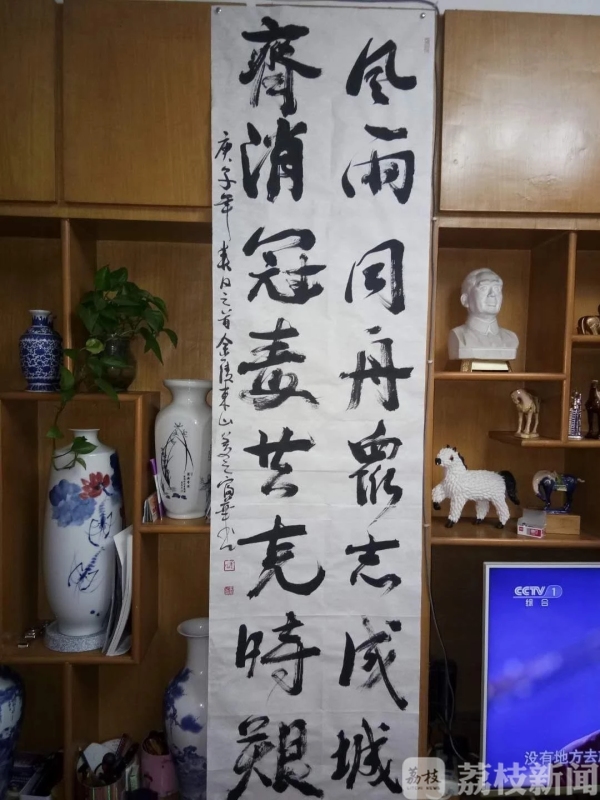 風雨同舟眾志成城
齊消冠毒共克時艱
庚子年春日之首金陵東山
CCTV 1
综合
没有地方去
荔枝
荔枝新闻